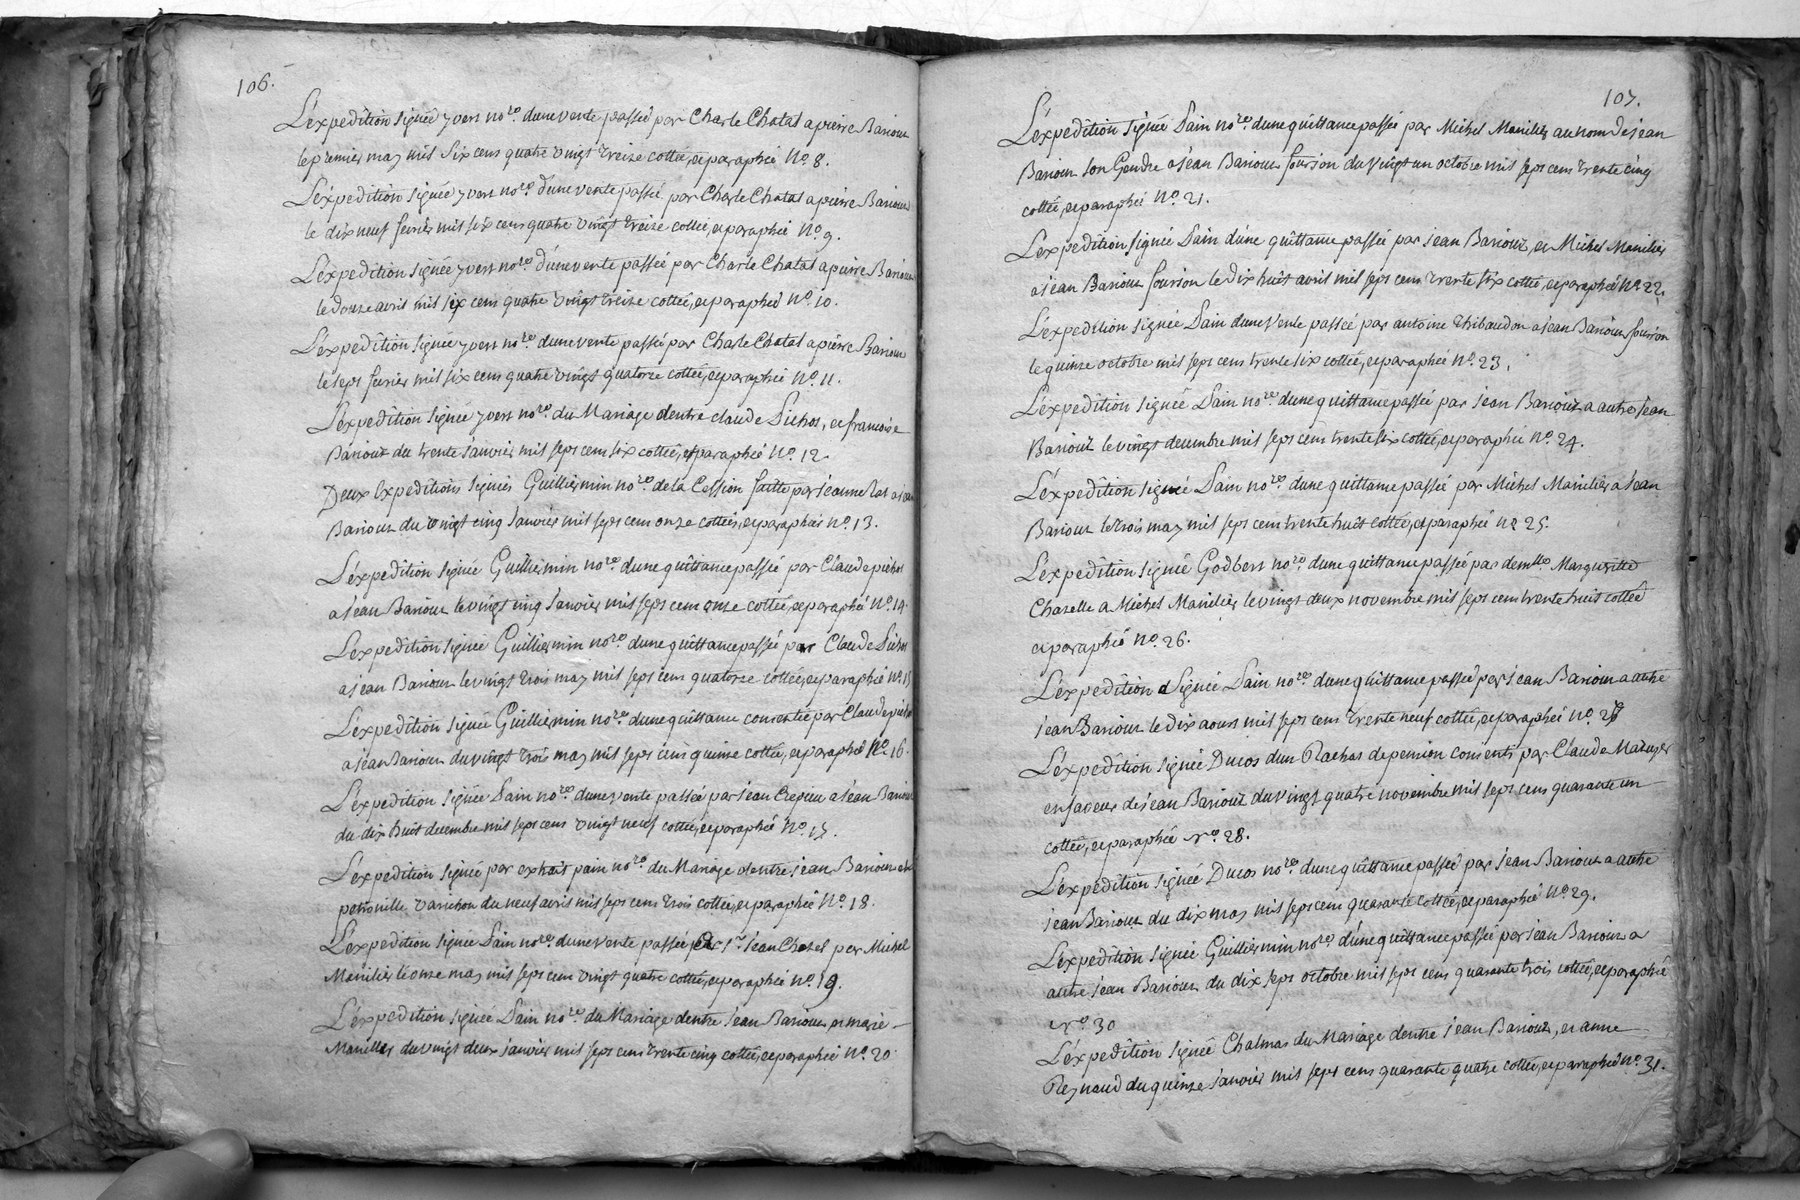 106.
L'expedition signée yvert no.re d'une vente passée par Charle Chatat a pierre Barioux
le premier may mil six cens quatre vingt treize cottée, et paraphée N.o 8.
L'expedition signée yvert no.re d'une vente passée par Charle Chatat a pierre Barioux
le dix neuf fevrier mil six cens quatre vingt treize cottée, et paraphée N.o 9.
L'expedition signée yvert no.re d'une vente passée par Charle Chatat a pierre Barioux
le douze avril mil six cens quatre vingt treize cottée, et paraphée N.o 10.
L'expedition signée yvert no.re d'une vente passée par Charle Chatat a pierre Barioux
le sept fevrier mil six cens quatre vingt quatorze cottée, et paraphée N.o 11.
L'expedition signée yvert no.re du Mariage d'entre claude Pichot, et francoise
Barioux du trente janvier mil sept cens six cottée, et paraphée N.o 12.
Deux Expeditions signées Guilliermin no.re de la Cession faitte par jeanne a jean
Barioux du vingt cinq janvier mil sept cens onze cottées, et paraphées n.o 13.
L'expedition signée Guilliermin no.re d'une quittance passée par Claude pichot
a jean Barioux le vingt cinq janvier mil sept cens onze cottée, et paraphée N.o 14.
L'expedition signée Guilliermin no.re d'une quittance passée par Claude Pichot
a jean Barioux le vingt trois may mil sept cens quatorze cottée, et paraphée N.o 15
L'expedition signée Guilliermin no.re d'une quittance consentie par Claude pichot
a jean Barioux du vingt trois may mil sept cens quinze cottée, et paraphée N.o 16.
L'expedition signée Pain no.re d'une vente passée par jean Crepieu a jean Barioux
du dix huit decembre mil sept cens vingt neuf cottée, et paraphée N.o 17.
L'expedition signée par extrait pain no.re du Mariage d'entre jean Barioux et
petronille Varichon du neuf avril mil sept cens trois cottée, et paraphée N.o 18.
L'expedition signée Pain no.re d'une vente passée par s.r jean Chazel par Michel
Manilier le onze may mil sept cens vingt quatre cottée, et paraphée N.o 19.
L'expedition signée Pain no.re du Mariage d'entre jean Barioux, et marie
Manillier du vingt deux janvier mil sept cens trente cinq cottée, et paraphée N.o 20.
107.
L'expedition signée Pain no.re d'une quittance passée par Michel Manilier au nom de jean
Barioux son Gendre a jean Barioux fourion du vingt un octobre mil sept cens trente cinq
cottée, et paraphée N.o 21.
L'expedition signée Pain d'une quittance passée par jean Barioux, et Michel Manilier
a jean Barioux fourion le dix huit avril mil sept cens trente six cottée, et paraphée N.o 22.
L'expedition signée Pain d'une vente passée par antoine Thibaudon a jean Barioux fourion
le quinze octobre mil sept cens trente six cottée, et paraphée N.o 23.
L'expedition signée Pain no.re d'une quittance passée par jean Barioux a autre jean
Barioux le vingt decembre mil sept cens trente six cottée, et paraphée N.o 24.
L'expedition signée Pain no.re d'une quittance passée par Michel Manilier a jean
Barioux le trois may mil sept cens trente huit cottée, et paraphée N.o 25.
L'expedition signée Godbert no.re d'une quittance passée par dem.lle Margueritte
Chazelle a Michel Manilier le vingt deux novembre mil sept cens trente huit cottée
et paraphée N.o 26.
L'expedition signée Pain no.re d'une quittance passée par jean Barioux a autre
jean Barioux le dix aoust mil sept cens trente neuf cottée, et paraphée N.o 27
L'expedition signée Ducos d'un Rachat de pension consenti par Claude Mazuyer
en faveur de jean Barioux du vingt quatre novembre mil sept cens quarante un
cottée, et paraphée N.o 28.
L'expedition signée Ducos no.re d'une quittance passée par jean Barioux a autre
jean Barioux du dix may mil sept cens quarante cottée, et paraphée N.o 29.
L'expedition signée Guilliermin no.re d'une quittance passée par jean Barioux a
autre jean Barioux du dix sept octobre mil sept cens quarante trois cottée, et paraphée
N.o 30
L'expedition signée Chalmas du Mariage d'entre jean Barioux, et anne
Reynaud du quinze janvier mil sept cens quarante quatre cottée, et paraphée N.o 31.